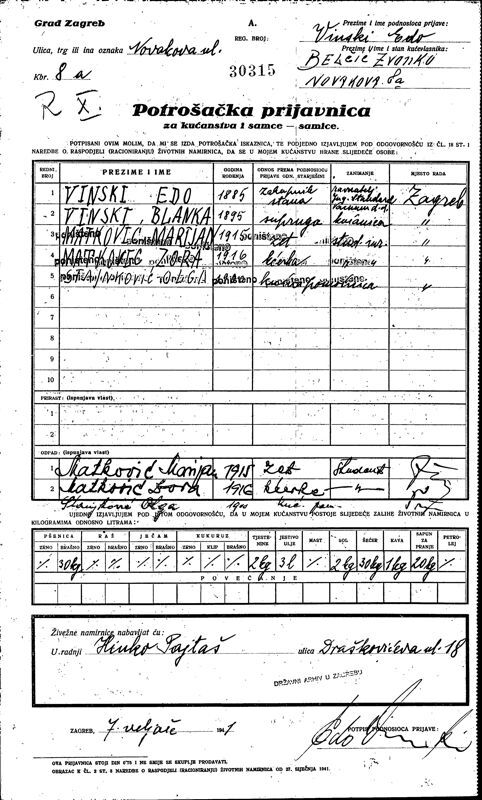 Grad Zagreb
A.
Prezime i ime podnosioca prijave:
REG. BROJ:
Vinski Edo
Ulica, trg ili ina oznaka Novakova ul.
Prezime i ime i stan kućevlasnika:
BELČIĆ ZVONKO
Kbr. 8 a
30315
NOVAKOVA 8a
R X.
Potrošačka prijavnica
za kućanstva i samce — samice.
POTPISANI OVIM MOLIM, DA MI SE IZDA POTROŠAČKA ISKAZNICA, TE PODJEDNO IZJAVLJUJEM POD ODGOVORNOŠĆU IZ ČL. 18 ST. 1
NAREDBE O RASPODJELI (RACIONIRANJU) ŽIVOTNIH NAMIRNICA, DA SE U MOJEM KUĆANSTVU HRANE SLIJEDEĆE OSOBE:
REDNI BROJ PREZIME I IME GODINA ROĐENJA ODNOS PREMA PODNOSIOCU PRIJAVE ODN. STARJEŠINI ZANIMANJE MJESTO RADA
1 VINSKI EDO 1885 zakupnik stana Jug. Standard Vacuum d.d. Zagreb
2 VINSKI BLANKA 1895 supruga kućanica "
3 MATKOVIĆ MARIJAN 1915 zet stud. iur. "
4 MATKOVIĆ ZORA 1916 kćerka "
5 STANKOVIĆ OLGA kućna pomoćnica "
poništeno
6
7
8
9
10
PRIRAST: (ispunjava vlast)
1
2
ODPAD: (ispunjava vlast)
1 Matković Marijan 1915 zet student
2 Matković Zora 1916 kćerka — " —
Olga
UJEDNO IZJAVLJUJEM POD ISTOM ODGOVORNOŠĆU, DA U MOJEM KUĆANSTVU POSTOJE SLIJEDEĆE ZALIHE ŽIVOTNIH NAMIRNICA U
KILOGRAMIMA ODNOSNO LITRAMA:
PŠENICA RAŽ JEČAM KUKURUZ TJESTENINE JESTIVO ULJE MAST SOL ŠEĆER KAVA SAPUN ZA PRANJE PETROLEJ
ZRNO BRAŠNO ZRNO BRAŠNO ZRNO BRAŠNO ZRNO KLIP BRAŠNO
% 30kg % % % % % % % 2kg 3l % 2kg 30kg 1kg 20kg %
POVEĆANJE
Živežne namirnice nabavljat ću:
U radnji Hinko Pajtaš ulica Draškovićeva ul. 18
DRŽAVNI ARHIV U ZAGREBU
ZAGREB, 7 veljače 1941
POTPIS PODNOSIOCA PRIJAVE:
Edo Vinski
OVA PRIJAVNICA STOJI DIN 0'75 I NE SMIJE SE SKUPLJE PRODAVATI.
OBRAZAC K ČL. 2 ST. 2 NAREDBE O RASPODJELI (RACIONIRANJU) ŽIVOTNIH NAMIRNICA OD 27. SIJEČNJA 1941.